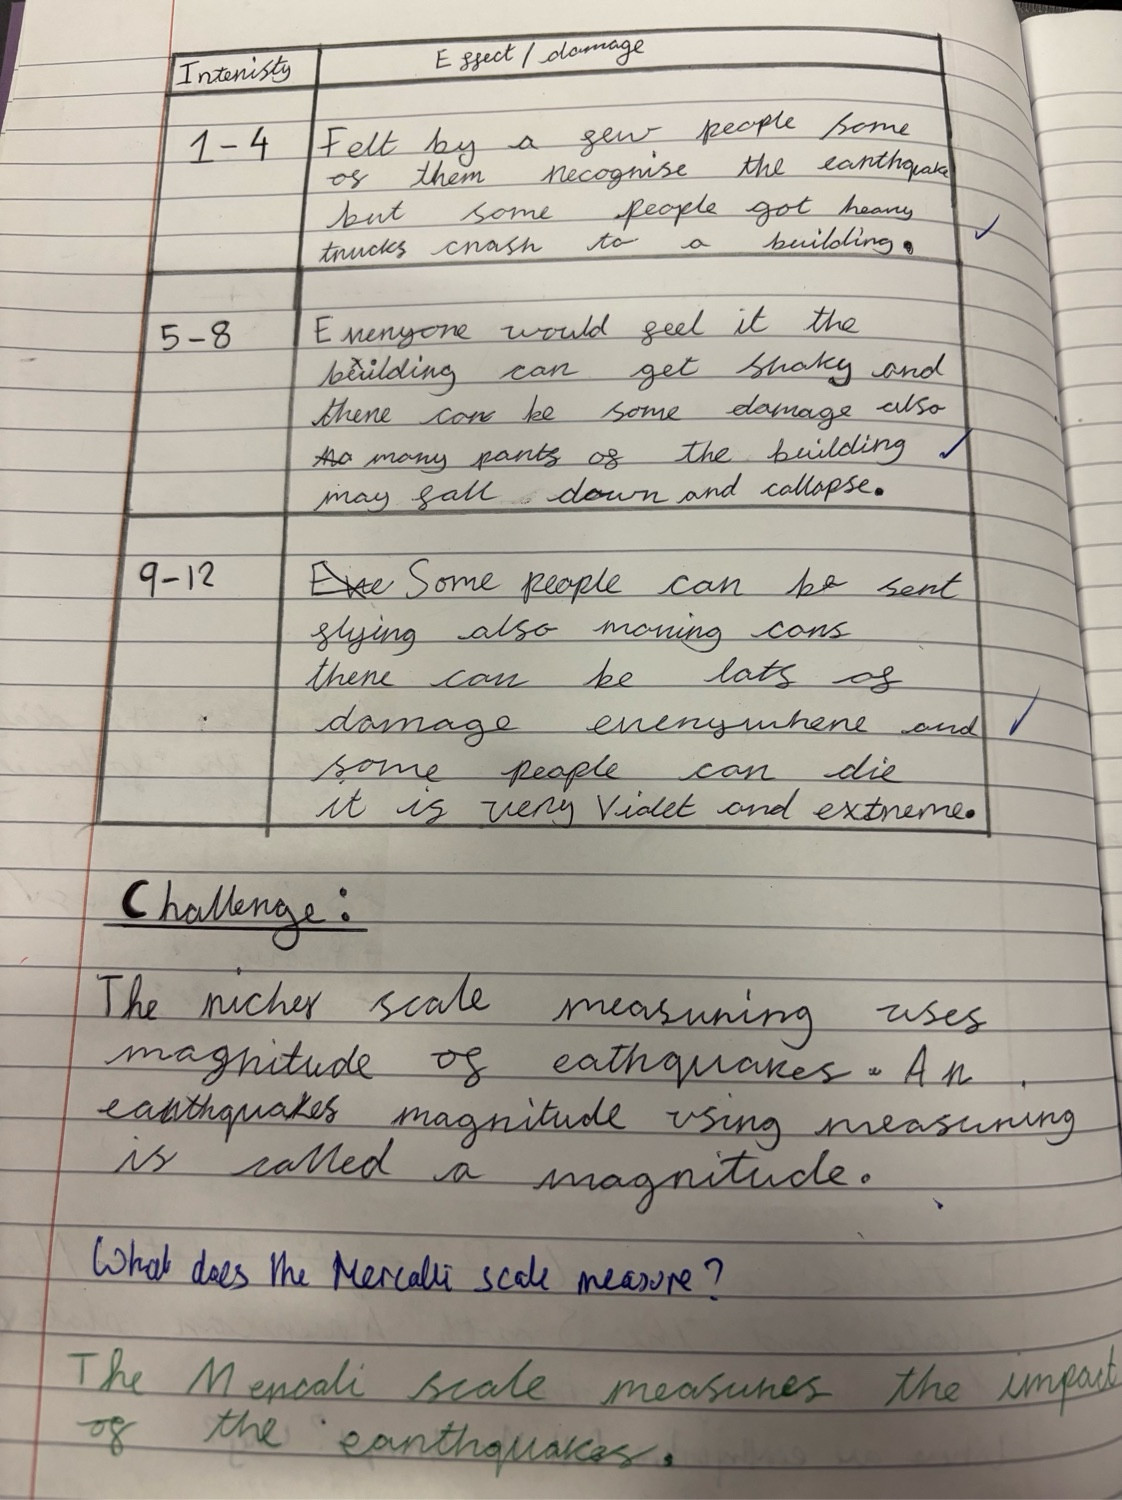 Intenisty Effect / damage
1-4 Felt by a few people some
of them recognise the earthquake
but some people got heavy
trucks crash to a building.
5-8 Everyone would feel it the
building can get shaky and
there can be some damage also
many parts of the building
may fall down and collapse.
9-12 Some people can be sent
flying also moving cars
there can be lots of
damage everywhere and
some people can die
it is very Violet and extreme.
Challenge:
The richer scale measuring uses
magnitude of eathquakes. An
earthquakes magnitude using measuring
is called a magnitude.
What does the Mercalli scale measure?
The Mercali scale measures the impact
of the earthquakes.